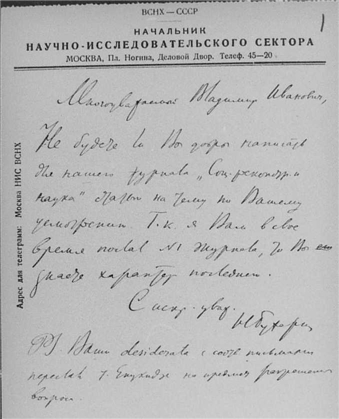 1
ВСНХ — СССР
НАЧАЛЬНИК
НАУЧНО-ИССЛЕДОВАТЕЛЬСКОГО СЕКТОРА
МОСКВА, Пл. Ногина, Деловой Двор. Телеф. 45—20
Адрес для телеграмм: Москва НИС ВСНХ
Многоуважаемый Владимир Иванович,
Не будете ли Вы добры написать
для нашего журнала „Соц. реконстр. и
наука" статью на тему по Вашему
усмотрению. Т. к. я Вам в свое
время послал №1 журнала, то Вы
знаете характер последнего.
С искр. уваж.
Н Бухарин
PS Ваши desiderata с соотв. письмами
переслал т. Енукидзе на предмет разрешения
вопроса.